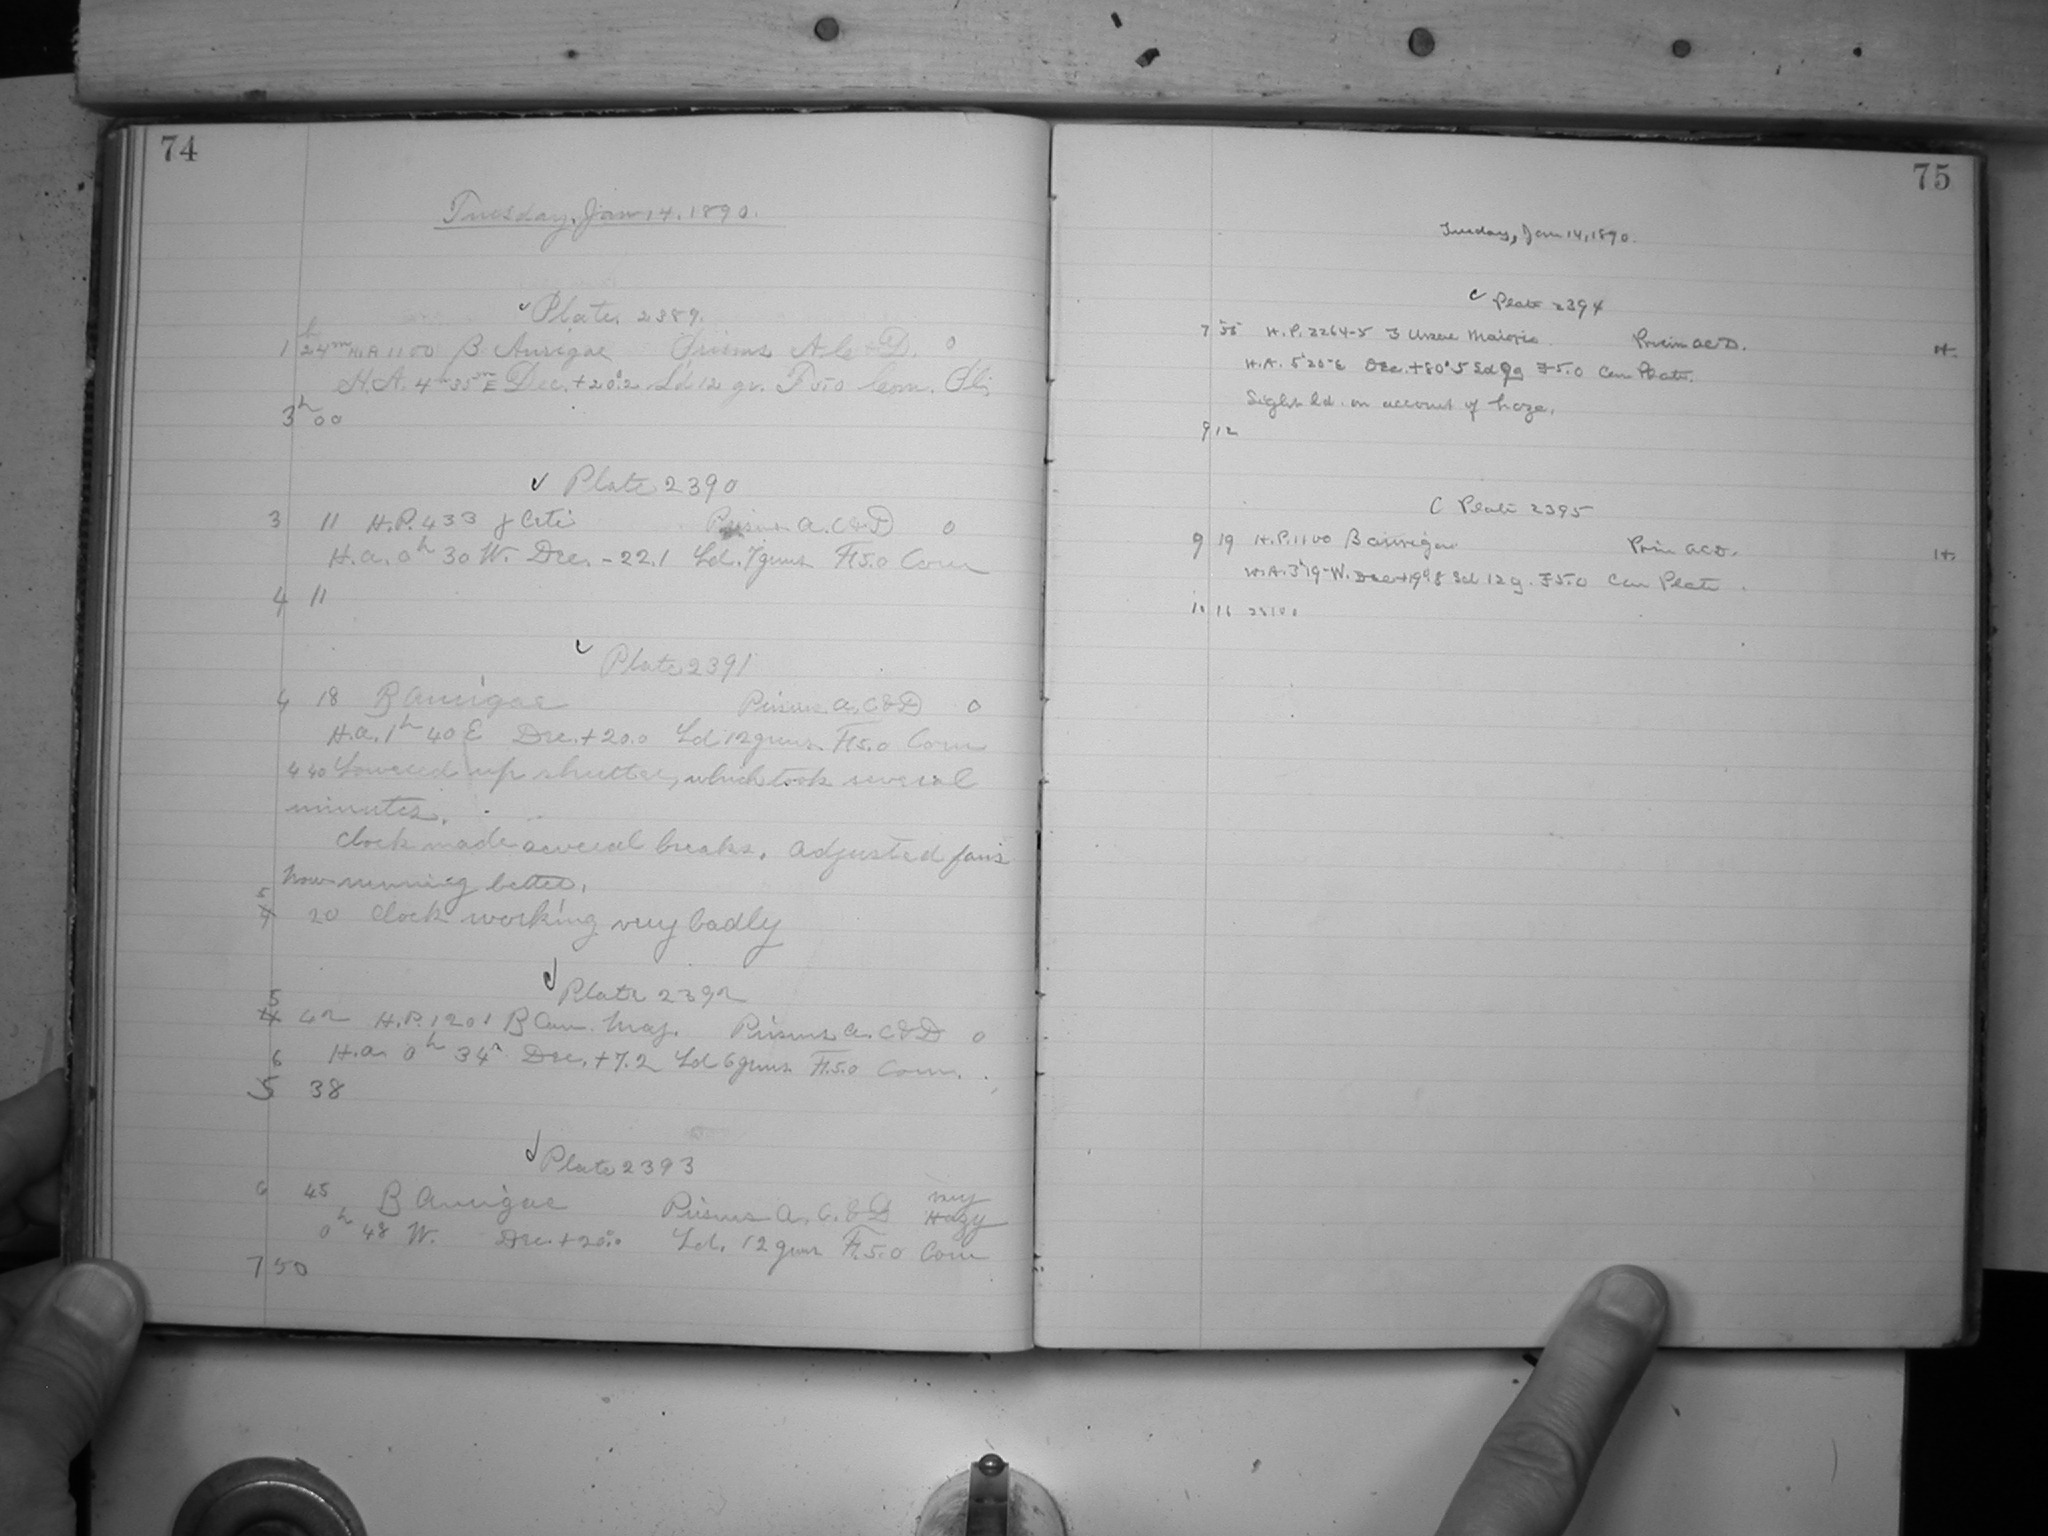 74
Tuesday, Jan 14, 1890.
Plate 2389.
1 h 24 m H.A 1100 β Aurigae Prisms A. C & D. 0
H.A. 4h 35m E Dec. +20°.2 Ld 12 gr. F 5.0 Com. Pl
3 h 00
✓ Plate 2390
3 11 H.P. 433 γ Ceti Prisms A. C & D 0
H.a. 0h 30 W. Dec. -22.1 Ld. 7 grms F 5.0 Com
4 11
Plate 2391
4 18 β Aurigae Prisms A. C & D 0
H.a. 1h 40 E Dec. +20.0 Ld 12 grms. F 5.0 Com
4 40 Lowered up shutter, which took several
minutes.
Clock made several breaks. Adjusted fans
Now running better.
5 20 Clock working very badly
Plate 2392
5 42 H.P. 1201 β Can. Maj. Prisms a. C & D 0
H.a. 0h 34 Dec. +7.2 Ld 6 grms. F 5.0 Com.
6 38
Plate 2393
6 45 β Aurigae Prisms A. C. & D very Hazy
0h 48 W. Dec. +20.0 Ld. 12 grms F. 5.0 Com
7 50
75
Tuesday, Jan 14, 1890.
C Plate 2394
7 55 H.P. 2264-5 3 Ursae Maioris. Prism ACD. H.
H.A. 5h 20m E Dec. +80°.5 Sd 9g F 5.0 Com Plate.
Slight ld. on account of haze.
9 12
C Plate 2395
9 19 H.P. 1100 β aurigae Prism ACD. H.
H.A. 3h 19m W. Dec +19°.8 Sd 12 g. F 5.0 Com Plate.
10 16